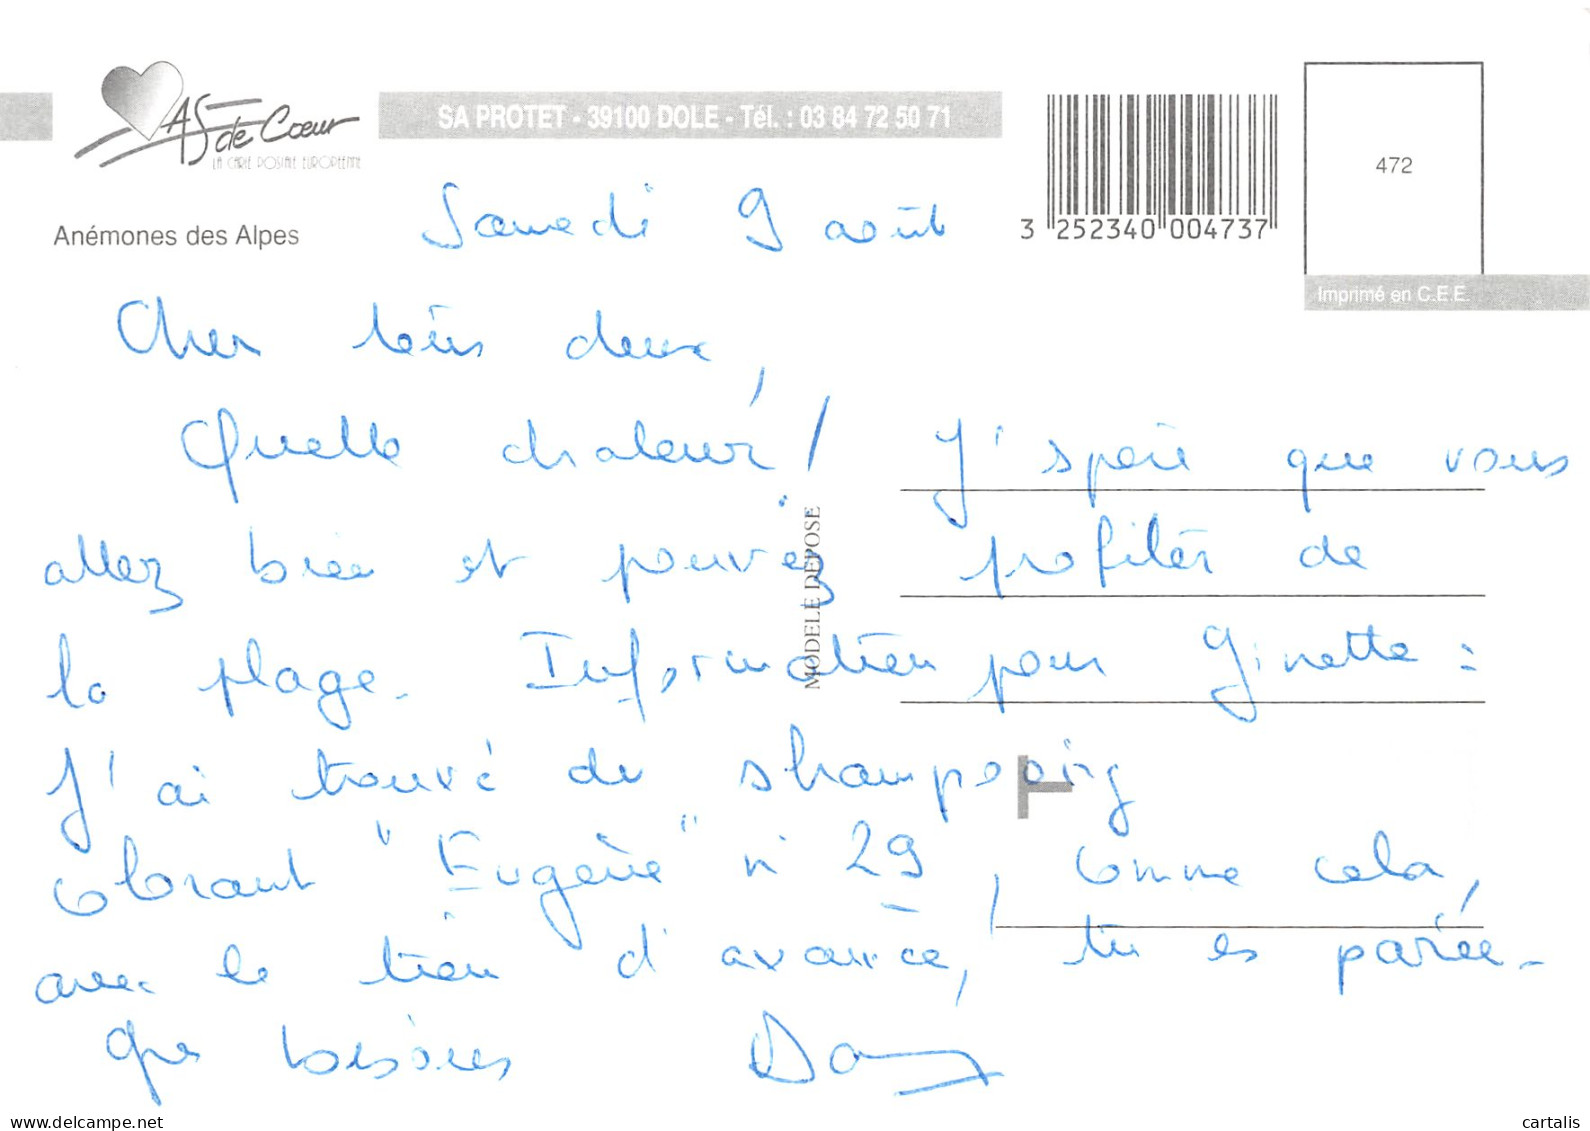 AS de Cœur
LA CARTE POSTALE EUROPEENNE
SA PROTET - 39100 DOLE - Tél. : 03 84 72 50 71
3 252340 004737
472
Imprimé en C.E.E.
Anémones des Alpes
MODELE DEPOSE
Samedi 9 août
Cher tous deux,
Quelle chaleur! J'spère que vous
allez bien et pouvez profiter de
la plage. Information pour Ginette :
J'ai trouvé du shampooing
colorant "Eugène" n° 29, comme cela,
avec le tien d'avance, tu es parée.
Gros bisous
www.delcampe.net
cartalis